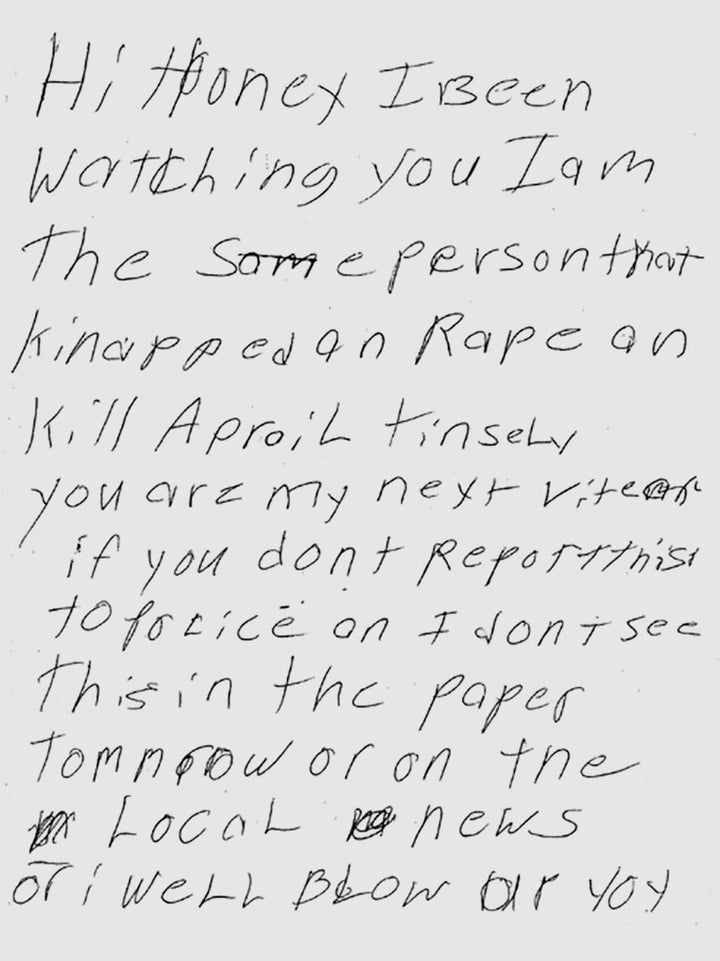 Hi Honey I Been
Watching you I am
The Some person that
Kinapped an Rape an
Kill Aproil tinsely
you are my next
if you dont Report this
to police an I dont see
This in the paper
Tommorow or on the
Local news
or i well Blow yoy